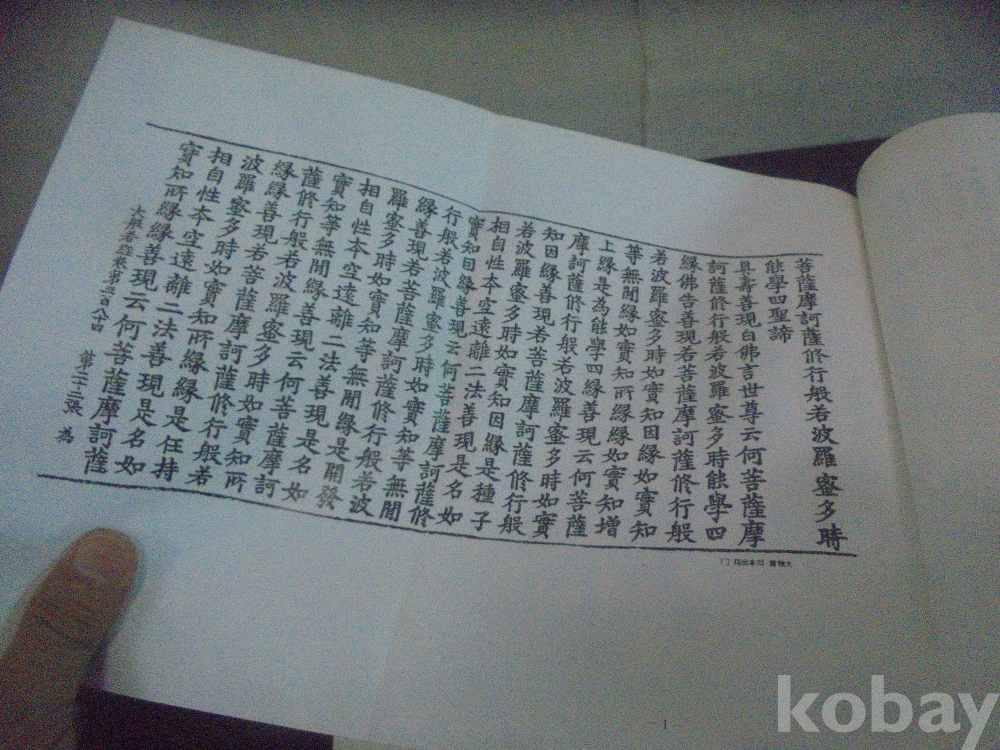 菩薩摩訶薩修行般若波羅蜜多時
能學四聖諦
具壽善現白佛言世尊云何菩薩摩
訶薩修行般若波羅蜜多時能學四
緣佛告善現若菩薩摩訶薩修行般
若波羅蜜多時如實知因緣如實知
等無閒緣如實知所緣緣如實知增
上緣是為能學四緣善現云何菩薩
摩訶薩修行般若波羅蜜多時如實
知因緣善現若菩薩摩訶薩修行般
若波羅蜜多時如實知因緣是種子
相自性本空遠離二法善現是名如
實知因緣善現云何菩薩摩訶薩修
行般若波羅蜜多時如實知等無閒
緣善現若菩薩摩訶薩修行般若波
羅蜜多時如實知等無閒緣是開發
相自性本空遠離二法善現是名如
實知等無閒緣善現云何菩薩摩訶
薩修行般若波羅蜜多時如實知所
緣緣善現若菩薩摩訶薩修行般若
波羅蜜多時如實知所緣緣是任持
相自性本空遠離二法善現是名如
實知所緣緣善現云何菩薩摩訶薩
大般若經卷第三百八十四 第二十二張 為
1
kobay